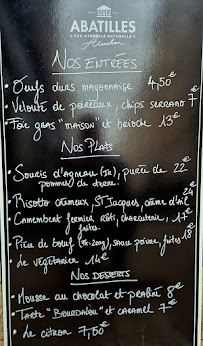 ABATILLES
EAU MINÉRALE NATURELLE
Arcachon
NOS ENTRÉES
• Oeufs durs mayonnaise 4,50€
• Velouté de poireaux, chips serrano 7€
• Foie gras "maison" et brioche 13€
NOS PLATS
• Souris d'Agneau (fr), purée de 22€
pommes de terre.
• Risotto crémeux, St Jacques, crème d'ail 24€
• Camembert fermier rôti, charcuterie, 17€
frites.
• Pièce de boeuf (fr. 200g), sauce poivre, frites 18€
• Le végétarien 14€
NOS DESSERTS
• Mousse au chocolat et praliné 8€
• Tarte "BOURDALOU" et caramel 7€
• Le citron 7,50€